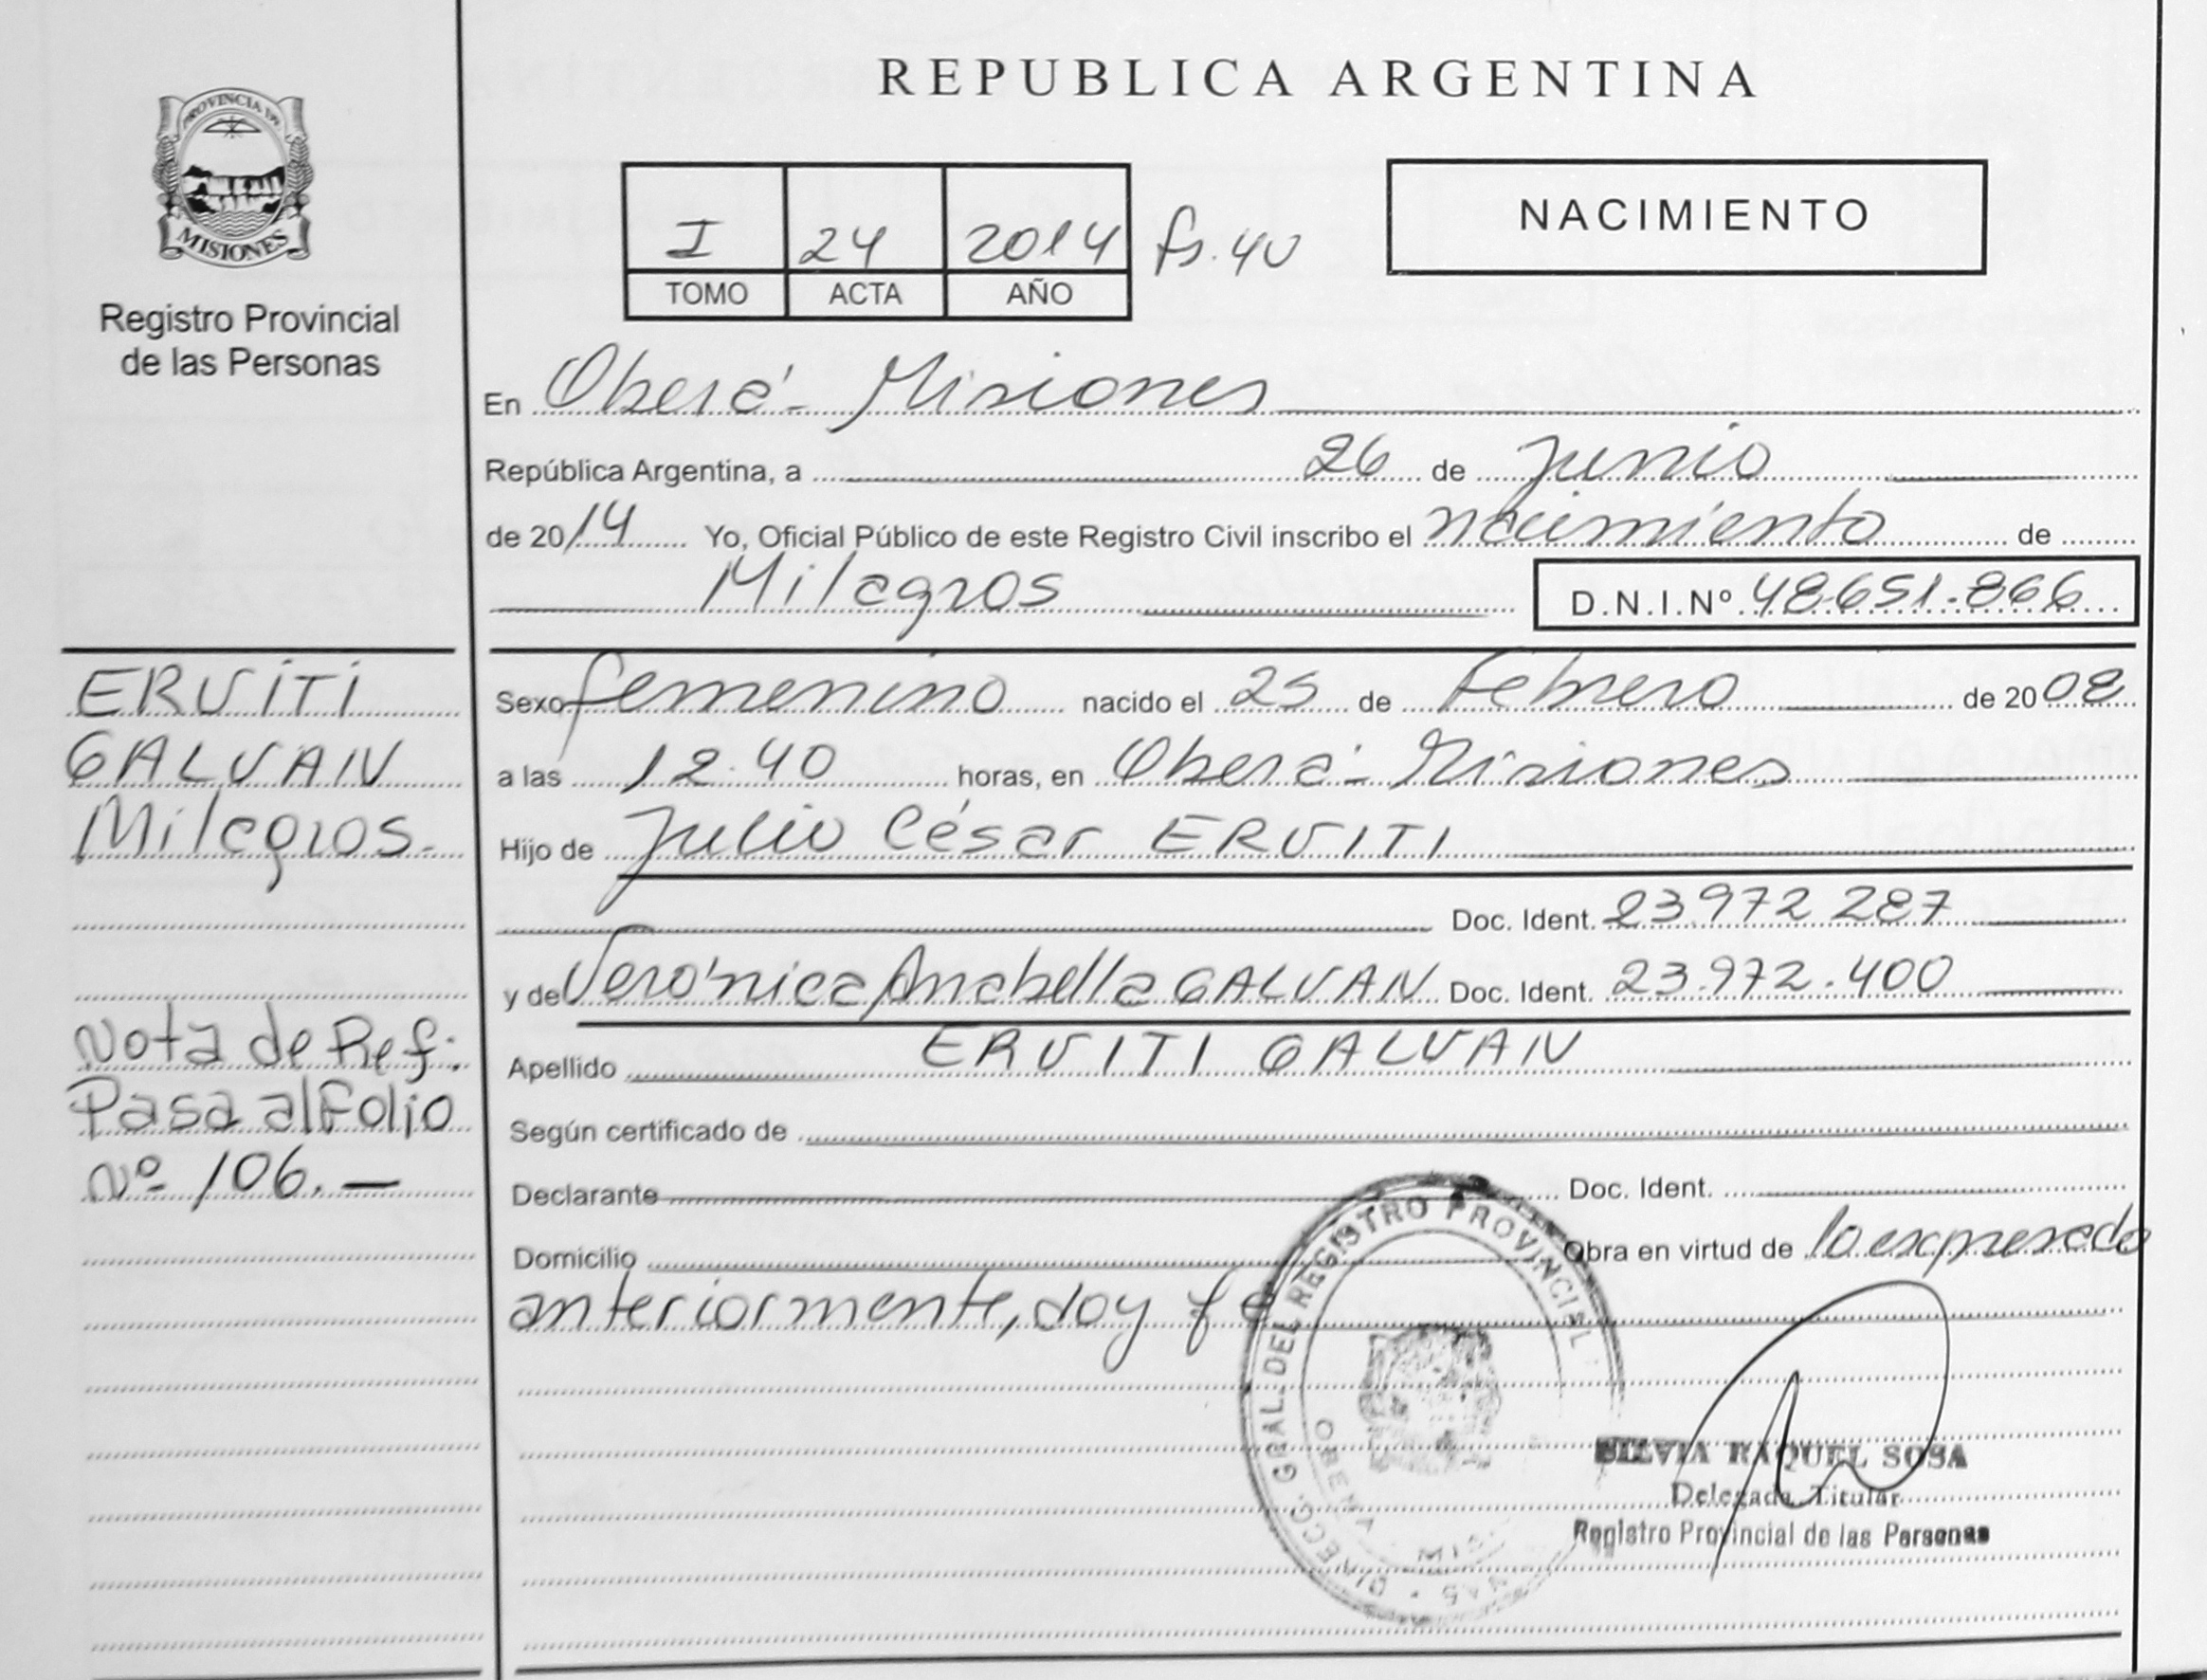 PROVINCIA DE
MISIONES
Registro Provincial
de las Personas
REPUBLICA ARGENTINA
I 24 2014 fs. 40
TOMO ACTA AÑO
NACIMIENTO
En Oberá - Misiones
República Argentina, a 26 de Junio
de 2014 Yo, Oficial Público de este Registro Civil inscribo el nacimiento de
Milagros D.N.I.Nº 48.651.866
ERVITI
GALVAN
Milagros.-
Nota de Ref:
Pasa al Folio
Nº 106.-
Sexo femenino nacido el 25 de Febrero de 2008
a las 12.40 horas, en Oberá - Misiones
Hijo de Julio César ERVITI
Doc. Ident. 23.972 287
y de Verónica Anabella GALVAN Doc. Ident. 23.972.400
Apellido ERVITI GALVAN
Según certificado de
Declarante Doc. Ident.
Domicilio Obra en virtud de lo expresado
anteriormente, doy fe
DIRECC. GRAL. DEL REGISTRO PROVINCIAL
SILVIA RAQUEL SOSA
Delegada Titular
Registro Provincial de las Personas